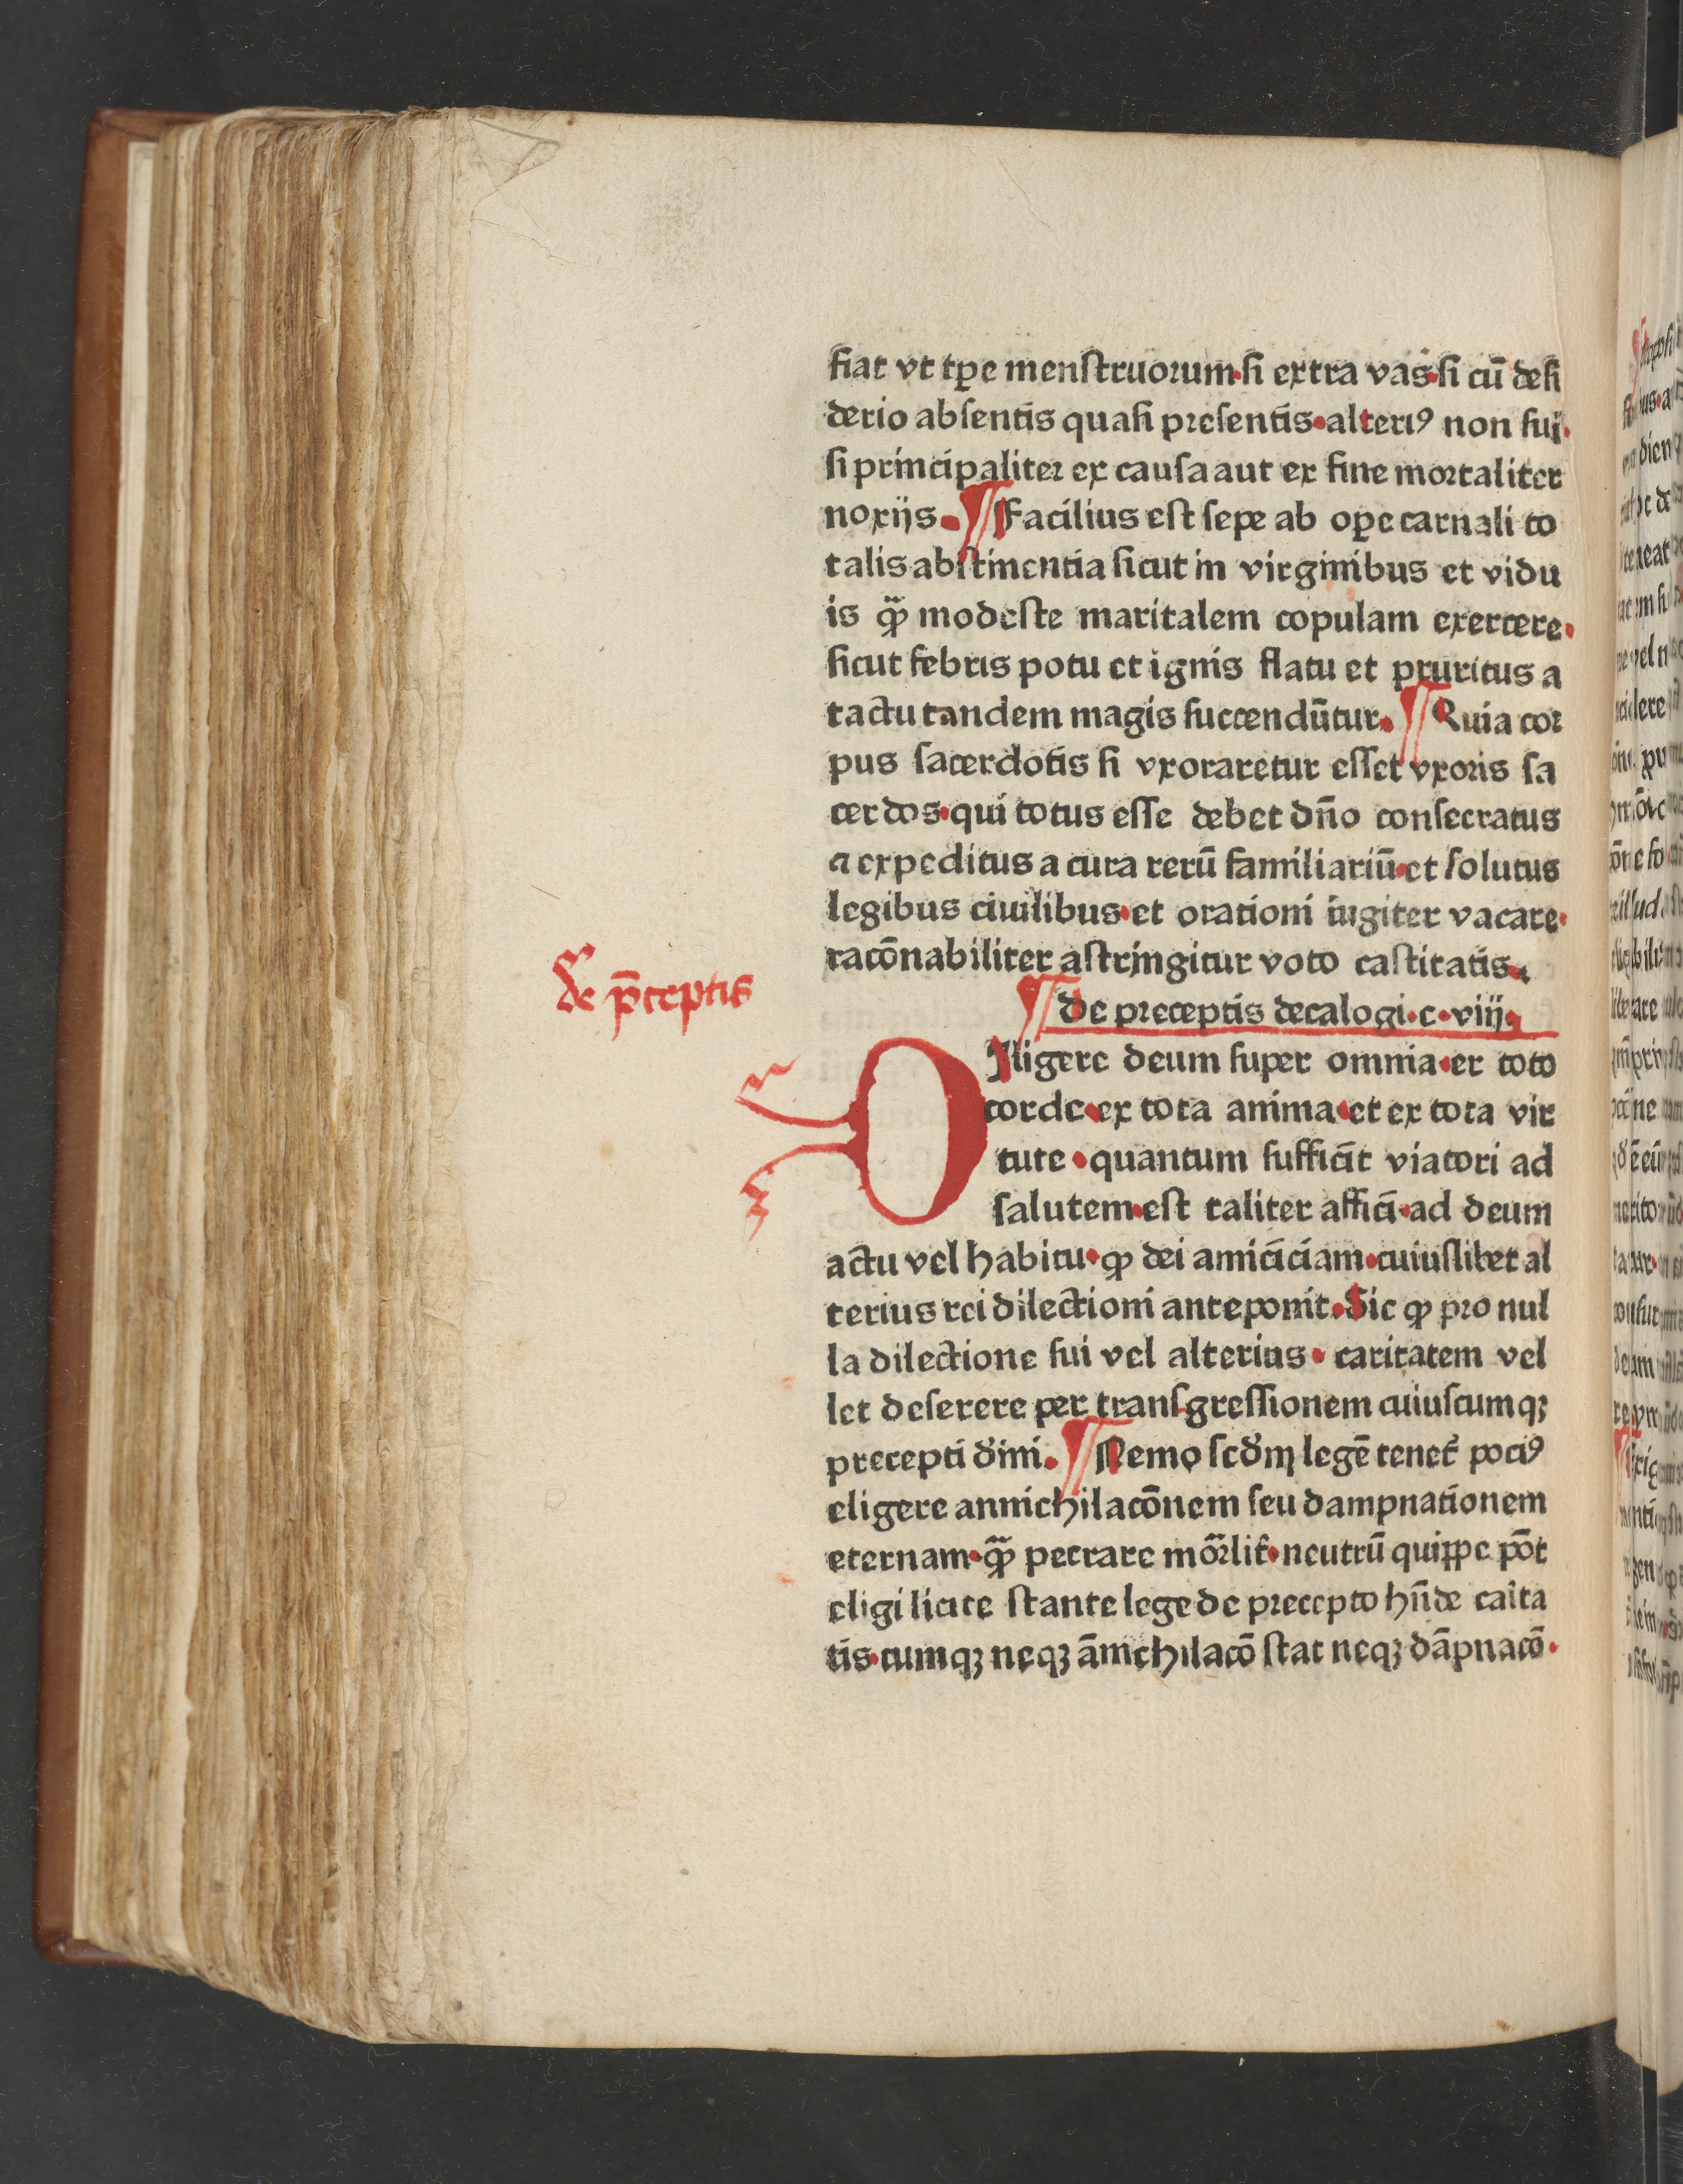 fiat vt tꝑe menſtruorum·ſi extra vas·ſi cū deſi
derio abſentis quaſi preſentis·alteriꝰ non ſui·
ſi principaliter ex cauſa aut ex fine mortaliter
noxijs. ¶ Facilius eſt ſepe ab oꝑe carnali to
talis abſtinentia ſicut in virginibus et vidu
is qͣ̄ꝫ modeſte maritalem copulam exercere·
ſicut febris potu et ignis flatu et pruritus a
tactu tandem magis ſuccendūtur. ¶ Quia cor
pus ſacerdotis ſi vxoraretur eſſet vxoris ſa
cerdos·qui totus eſſe debet dn̄o conſecratus
⁊ expeditus a cura rerū familiariū·et ſolutus
legibus ciuilibus·et orationi iugiter vacare·
racōnabiliter aſtringitur voto caſtitatis.
de p̄ceptis
¶ De preceptis decalogi·c·viij·
DIligere deum ſuper omnia·ex toto
corde·ex tota anima·et ex tota vir
tute·quantum ſufficit viatori ad
ſalutem·eſt taliter affici·ad deum
actu vel habitu·ꝙ dei amiciciam·cuiuſlibet al
terius rei dilectioni anteponit·Sic ꝙ pro nul
la dilectione ſui vel alterius·caritatem vel
let deſerere per tranſgreſſionem cuiuſcumqꝫ
precepti dīni. ¶ Nemo ſcd̄m legē tenet̄ pociꝰ
eligere annichilacōnem ſeu dampnationem
eternam·qͣ̄ꝫ peccare mōrlit̄·neutrū quippe pōt
eligi licite ſtante lege de precepto hn̄de cāita
tis·cumqꝫ neqꝫ ānichilacō ſtat neqꝫ dāpnacō·